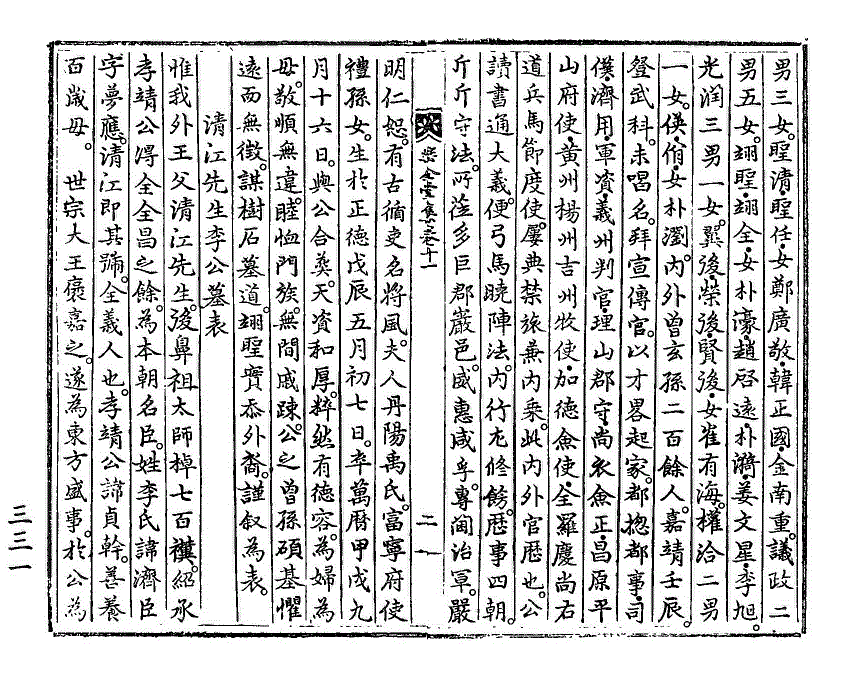 男三女。聖淸,聖任,女鄭廣敬,韓正國,金南重。議政二
男五女。翊聖,翊全,女朴濠,趙啓遠,朴漪,姜文星,李旭。
光潤三男一女。巽後,榮後,賢後,女崔有海。權洽二男
一女。偀,偦,女朴瀏。內外曾玄孫二百餘人。嘉靖壬辰。
登武科。未唱名。拜宣傳官。以才畧起家。都摠都事,司
僕,濟用,軍資,義州判官,理山郡守,尙衣僉正,昌原平
山府使,黃州楊州吉州牧使,加德僉使,全羅慶尙右
道兵馬節度使。屢典禁旅兼內乘。此內外官歷也。公
讀書通大義。便弓馬曉陣法。內行尤修飭。歷事四朝。
斤斤守法。所莅多巨郡巖邑。威惠咸孚。專閫治軍。嚴
樂全堂集卷十一
二一
明仁恕。有古循吏名將風。夫人丹陽禹氏。富寧府使
禮孫女。生於正德戊辰五月初七日。卒萬曆甲戌九
月十六日。與公合葬。天資和厚。粹然有德容。爲婦爲
母。敬順無違。睦恤門族。無間戚踈。公之曾孫碩基懼
遠而無徵。謀樹石墓道。翊聖實忝外裔。謹叙爲表。
淸江先生李公墓表
惟我外王父淸江先生。後鼻祖太師棹七百禩。紹承
孝靖公得全全昌之餘。爲本朝名臣。姓李氏諱濟臣
字夢應。淸江卽其號。全義人也。孝靖公諱貞幹。善養
百歲母。 世宗大王褒嘉之。遂爲東方盛事。於公爲
三三一